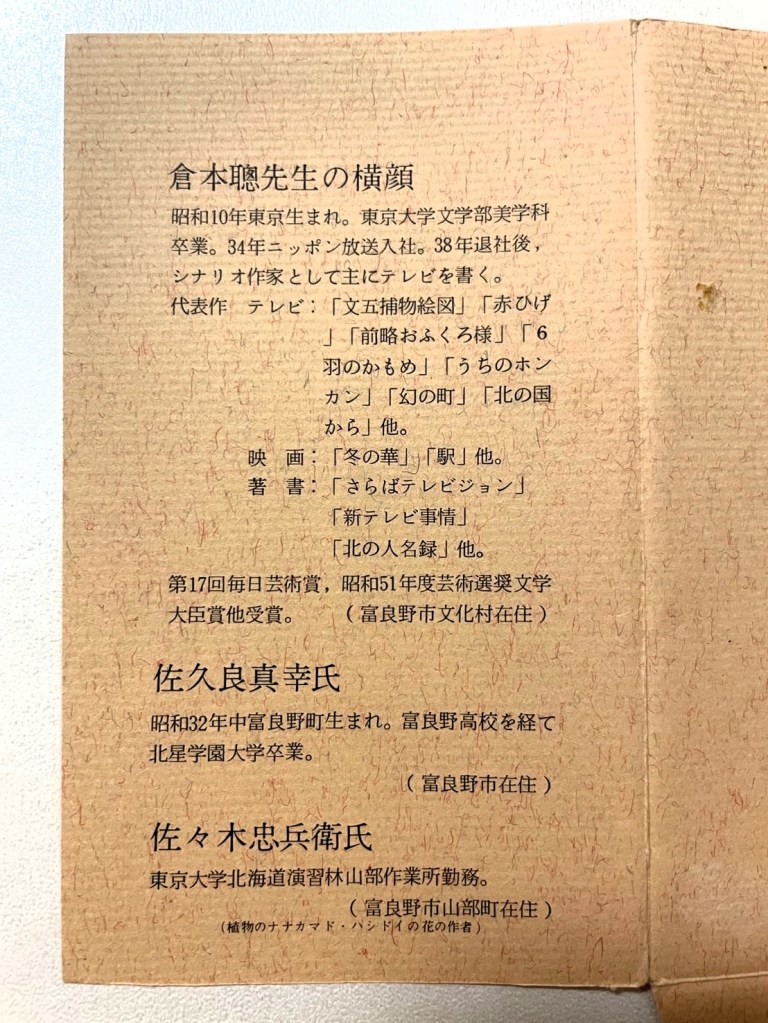 倉本聰先生の横顔
昭和10年東京生まれ。東京大学文学部美学科
卒業。34年ニッポン放送入社。38年退社後,
シナリオ作家として主にテレビを書く。
代表作 テレビ：「文五捕物絵図」「赤ひげ
」「前略おふくろ様」「6
羽のかもめ」「うちのホン
カン」「幻の町」「北の国
から」他。
映 画：「冬の華」「駅」他。
著 書：「さらばテレビジョン」
「新テレビ事情」
「北の人名録」他。
第17回毎日芸術賞, 昭和51年度芸術選奨文学
大臣賞他受賞。 （富良野市文化村在住）
佐久良真幸氏
昭和32年中富良野町生まれ。富良野高校を経て
北星学園大学卒業。
（富良野市在住）
佐々木忠兵衛氏
東京大学北海道演習林山部作業所勤務。
（富良野市山部町在住）
（植物のナナカマド・ハシドイの花の作者）